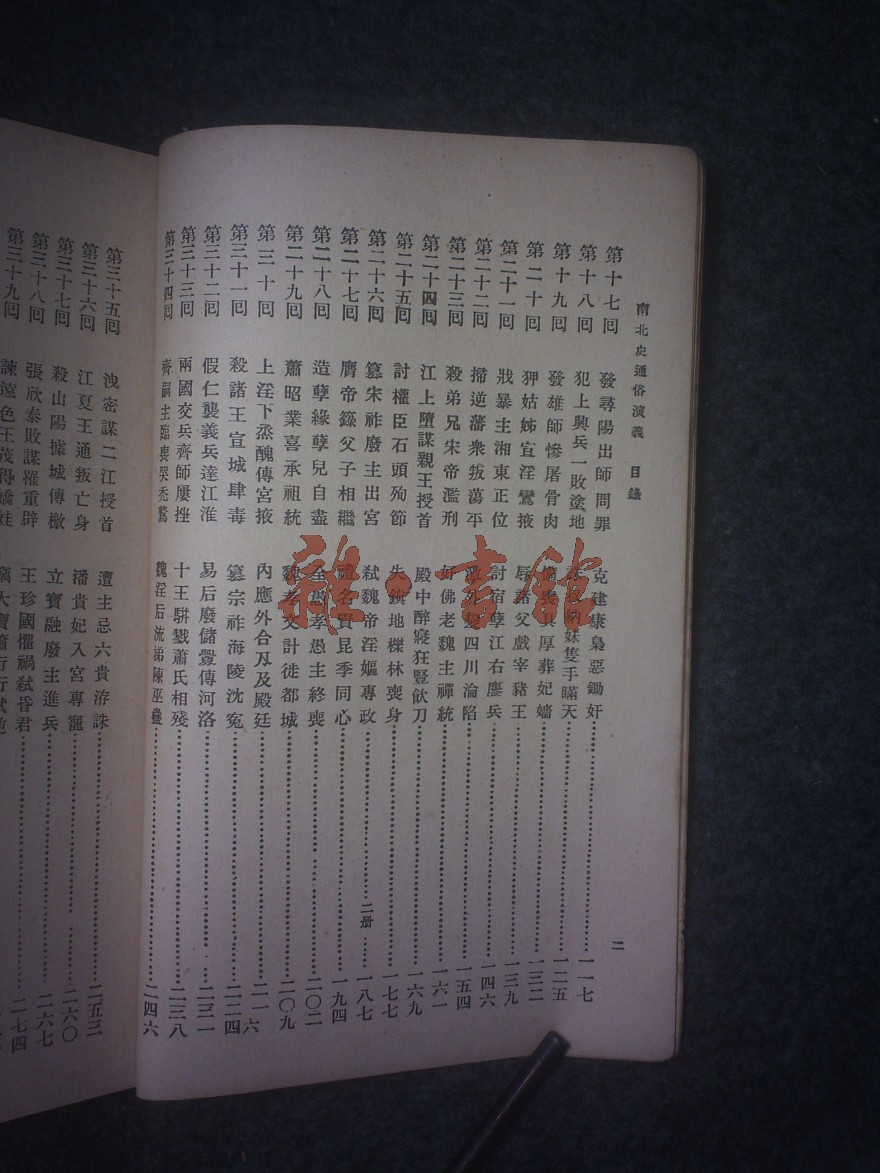 南北史通俗演義 目錄
二
第十七回 發尋陽出師問罪 克建康梟惡鋤奸 一一七
第十八回 犯上興兵一敗塗地 妹隻手瞞天 一二五
第十九回 發雄師慘屠骨肉 厚葬妃嬙 一三二
第二十回 狎姑姊宣淫鸞掖 辱諸父戲宰豬王 一三九
第二十一回 戕暴主湘東正位 討宿孽江右鏖兵 一四六
第二十二回 掃逆藩衆叛蕩平 四川淪陷 一五四
第二十三回 殺弟兄宋帝濫刑 好佛老魏主禪統 一六一
第二十四回 江上墮謀親王授首 殿中醉寢狂豎飲刀 一六九
第二十五回 討權臣石頭殉節 失鎮地櫟林喪身 一七七
第二十六回 篡宋祚廢主出宮 弑魏帝淫嫗專政 二册 一八七
第二十七回 膺帝籙父子相繼 禮名賢昆季同心 一九四
第二十八回 造孽緣孽兒自盡 全愚孝愚主終喪 二〇二
第二十九回 蕭昭業喜承祖統 魏孝文計徙都城 二〇九
第三十回 上淫下烝醜傳宮掖 內應外合刄及殿廷 二一六
第三十一回 殺諸王宣城肆毒 篡宗祚海陵沈冤 二二四
第三十二回 假仁襲義兵達江淮 易后廢儲釁傳河洛 二三一
第三十三回 兩國交兵齊師屢挫 十王駢戮蕭氏相殘 二三八
第三十四回 齊嗣主臨喪哭禿鶖 魏淫后流涕陳巫蠱 二四六
第三十五回 洩密謀二江授首 遭主忌六貴洊誅 二五三
第三十六回 江夏王通叛亡身 潘貴妃入宮專寵 二六〇
第三十七回 殺山陽據城傳檄 立寶融廢主進兵 二六七
第三十八回 張欣泰敗謀罹重辟 王珍國懼禍弑昏君 二七四
第三十九回 諫遠色王茂得嬌娃
雜·書館